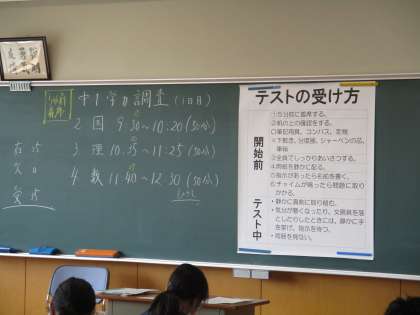 5分前
着席
中1学力調査(1日目)
2 国 9:30~10:20(50分)
3 理 10:35~11:25(50分)
4 数 11:40~12:30(50分)
テストの受け方
開始前
①5分前に着席する。
②机の上の確認をする。
○筆記用具、コンパス、定規
×下敷き、分度器、シャーペンの芯、筆箱
③全員でしっかりあいさつする。
④問題を静かに配る。
⑤指示があったら名前を書く。
⑥チャイムが鳴ったら問題に取りかかる。
テスト中
・静かに真剣に取り組む。
・気分が悪くなったり、文房具を落としたりしたときには、静かに手を挙げ、指示を待つ。
・周りを見ない。